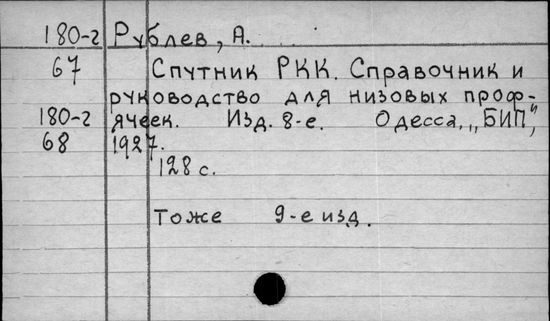 180-г Рублев, А.
67 Спутник РКК. Справочник и
руководство для низовых проф-
180-г ячеек. Изд. 8-е. Одесса, „БИП",
68 1927.
128 с.
Тоже 9-е изд.